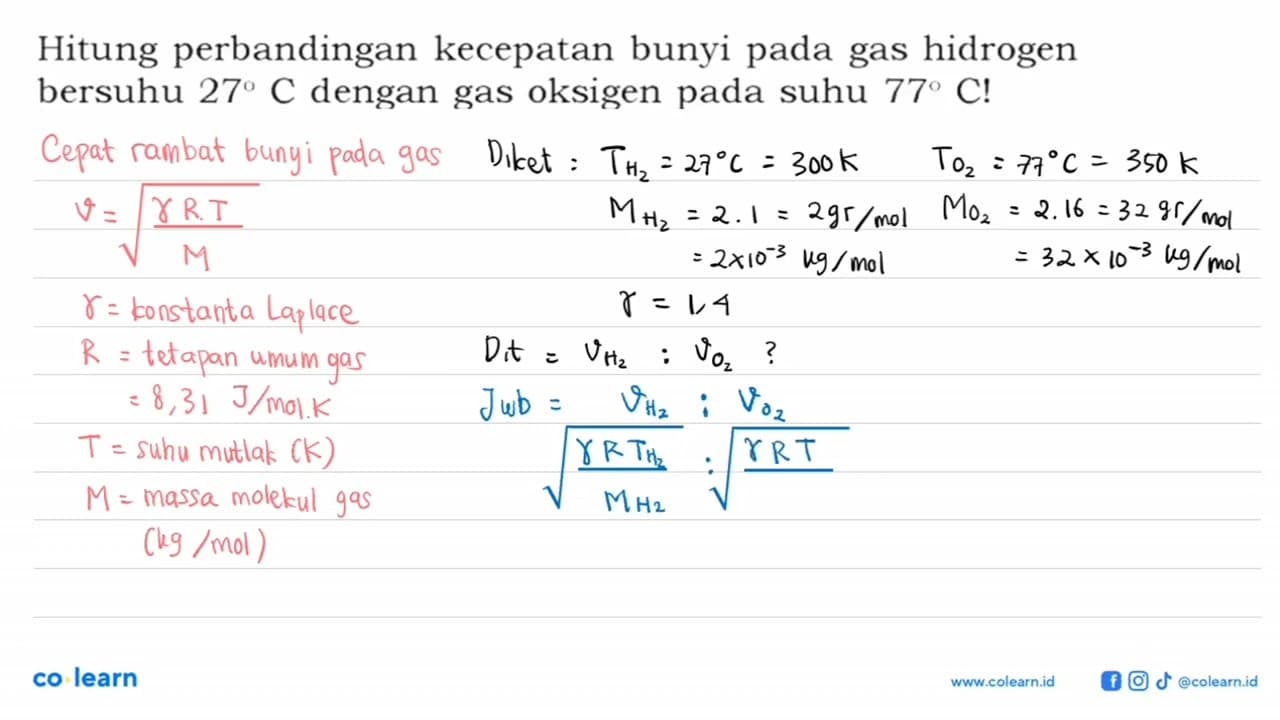 Hitung perbandingan kecepatan bunyi pada gas hidrogen
bersuhu 27° C dengan gas oksigen pada suhu 77° C!
Cepat rambat bunyi pada gas
v = √(γ R.T / M)
γ = konstanta Laplace
R = tetapan umum gas
= 8,31 J/mol.K
T = suhu mutlak (K)
M = massa molekul gas
(kg/mol)
Diket : T_H₂ = 27°C = 300 K
T_O₂ = 77°C = 350 K
M_H₂ = 2.1 = 2gr/mol
M_O₂ = 2.16 = 32 gr/mol
= 2×10⁻³ kg/mol
= 32 × 10⁻³ kg/mol
γ = 1,4
Dit = v_H₂ : v_O₂ ?
Jwb = v_H₂ : v_O₂
√(γ R T_H₂ / M_H₂) : √(γ R T
co learn
www.colearn.id
@colearn.id